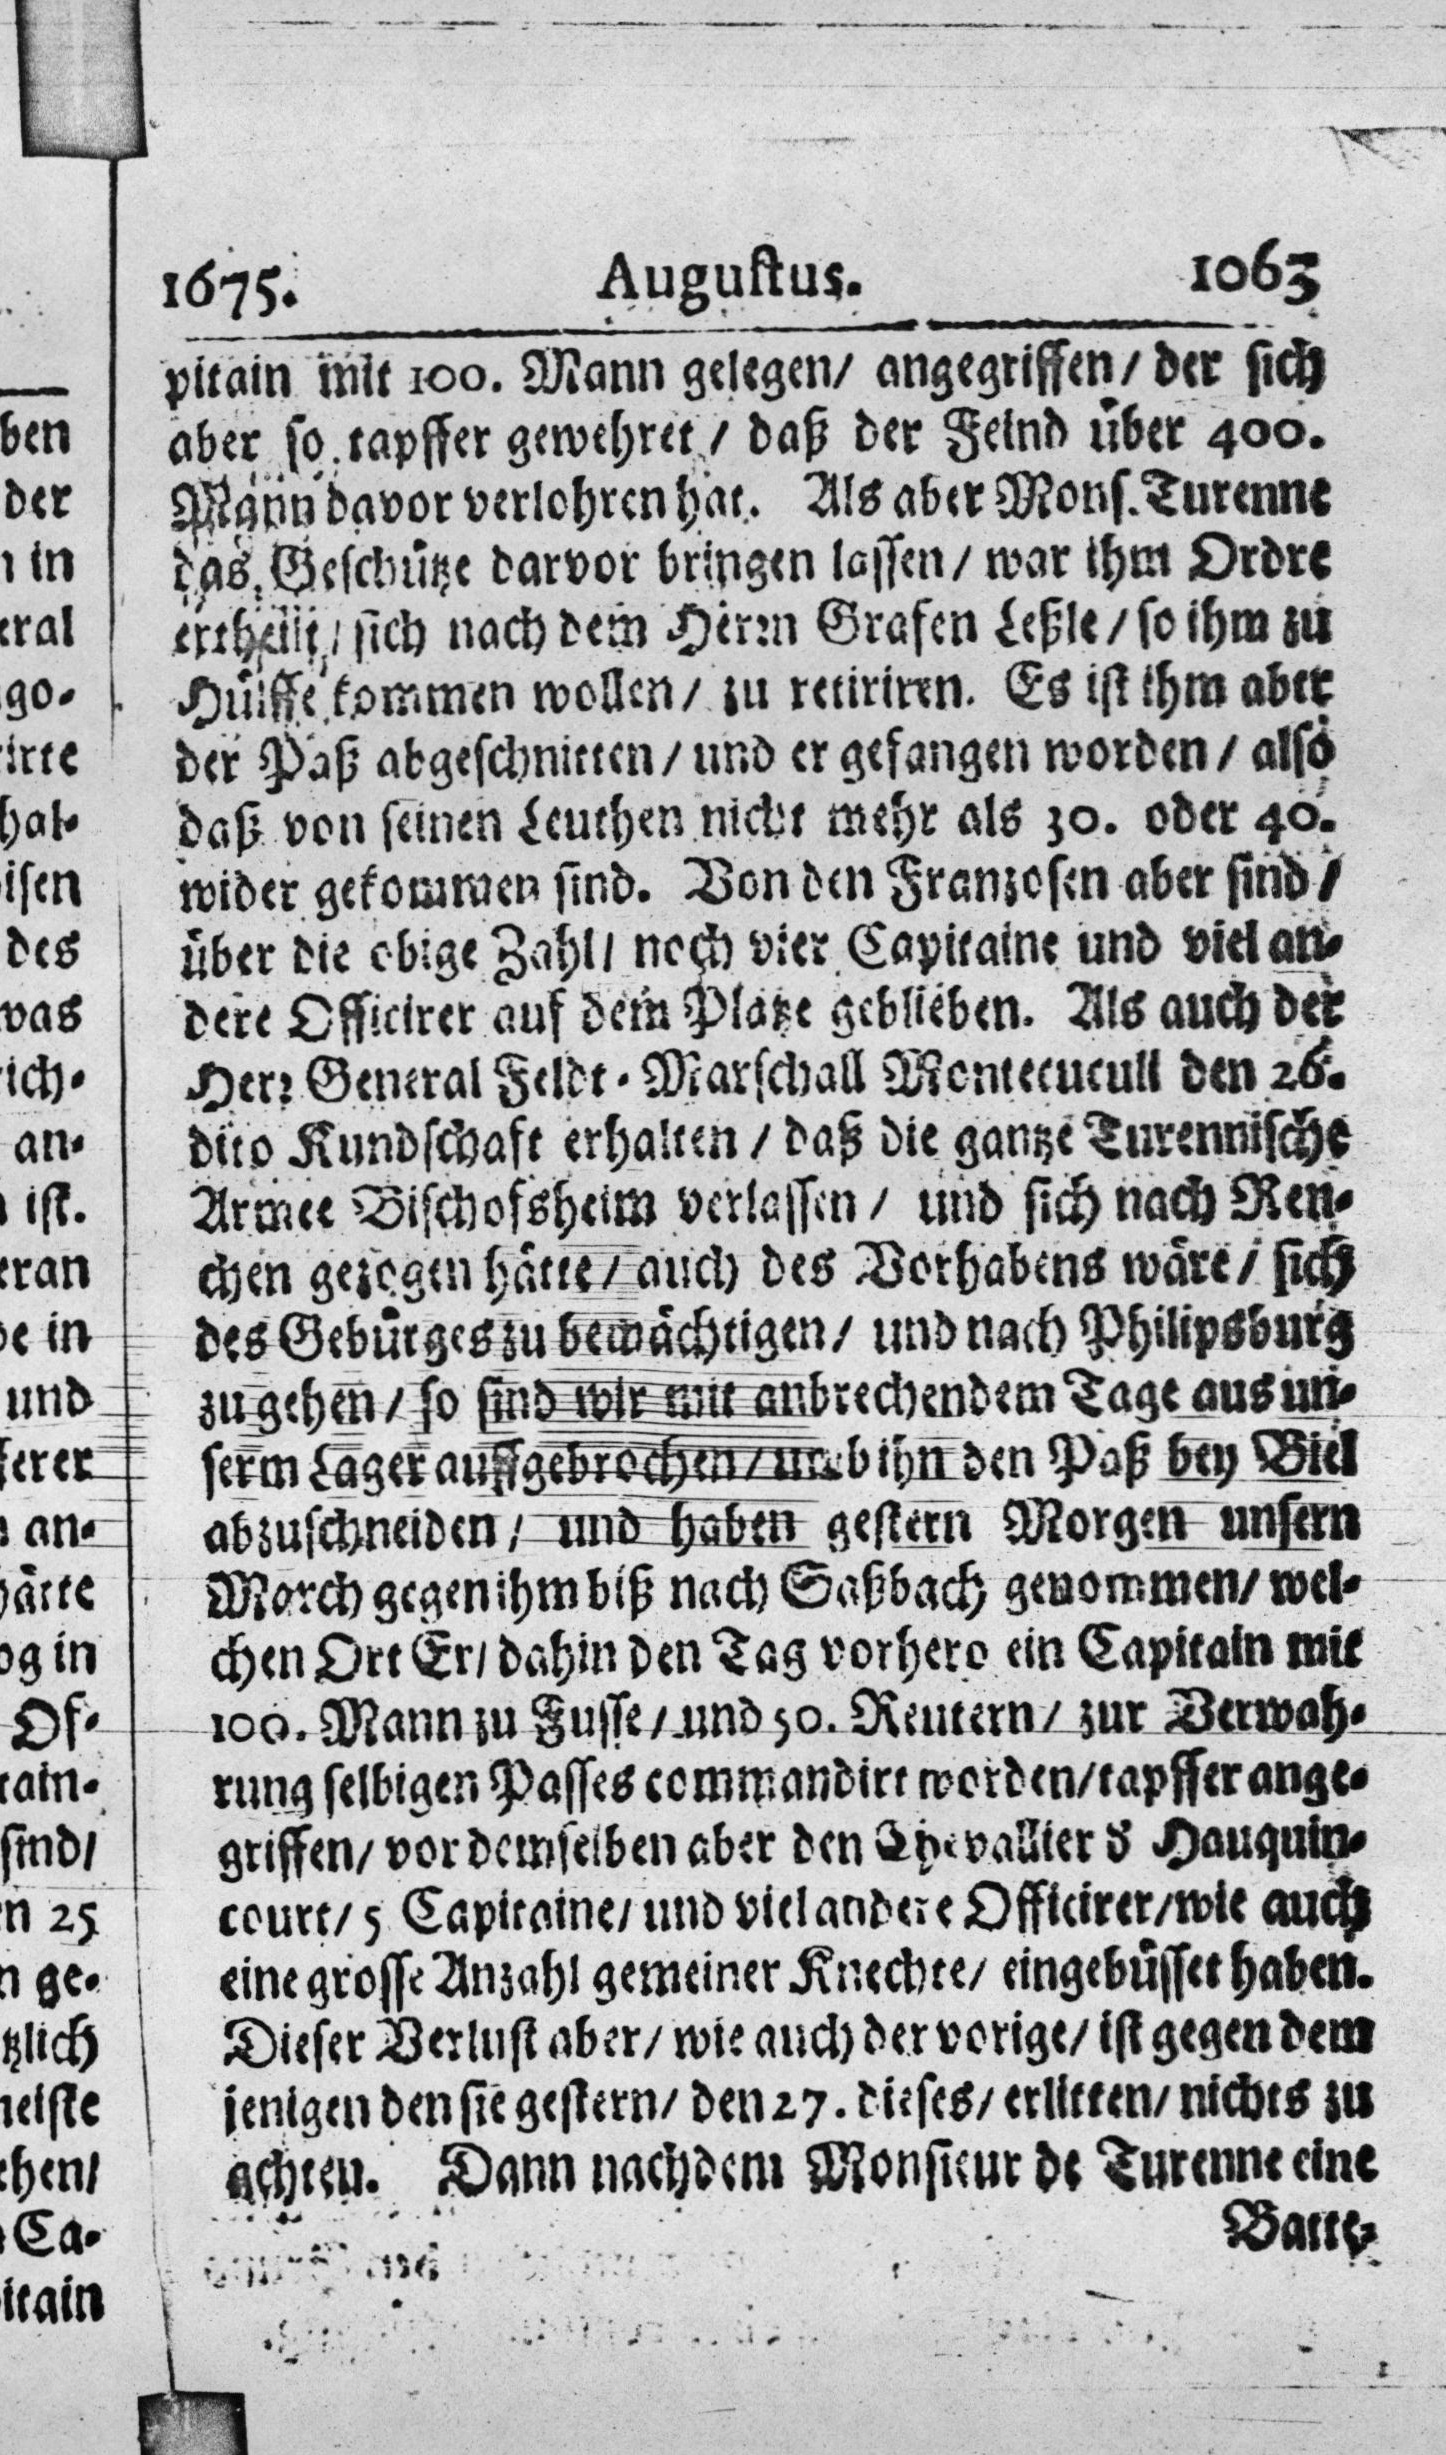 1675. Augustus. 1063
pitain mit 100. Mann gelegen/ angegriffen/ der sich
aber so tapffer gewehret/ daß der Feind über 400.
Mann davor verlohren hat. Als aber Mons. Turenne
das Geschütze darvor bringen lassen/ war ihm Ordre
ertheilt/ sich nach dem Herrn Grafen Leßle/ so ihm zu
Hülffe kommen wollen/ zu retiriren. Es ist ihm aber
der Paß abgeschnitten/ und er gefangen worden/ also
daß von seinen Leuthen nicht mehr als 30. oder 40.
wider gekommen sind. Von den Franzosen aber sind/
über die obige Zahl/ noch vier Capitaine und viel an-
dere Officirer auf dem Platze geblieben. Als auch der
Herr General Feldt-Marschall Montecucull den 26.
dito Kundschaft erhalten/ daß die gantze Turennische
Armee Bischofsheim verlassen/ und sich nach Ren-
chen gezogen hätte/ auch des Vorhabens wäre/ sich
des Gebürges zu bemächtigen/ und nach Philipsburg
zu gehen/ so sind wir mit anbrechendem Tage aus un-
serm Lager auffgebrochen/ ihn den Paß bey Biel
abzuschneiden/ und haben gestern Morgen unsern
March gegen ihm biß nach Saßbach genommen/ wel-
chen Ort Er/ dahin den Tag vorhero ein Capitain mit
100. Mann zu Fusse/ und 50. Reutern/ zur Verwah-
rung selbigen Passes commandirt worden/ tapffer ange-
griffen/ vor demselben aber den Chevallier d' Hauquin-
court/ 5 Capitaine/ und viel andere Officirer/ wie auch
eine grosse Anzahl gemeiner Knechte/ eingebüsset haben.
Dieser Verlust aber/ wie auch der vorige/ ist gegen dem
jenigen den sie gestern/ den 27. dieses/ erlitten/ nichts zu
achten. Dann nachdem Monsieur de Turenne eine
Batte-
ben
der
in
eral
go-
irte
hal-
isen
des
was
ich-
an-
ist.
eran
in
und
ferer
an-
hätte
og in
Of-
tain-
sind/
en 25
n ge-
tzlich
meiste
ehen/
Ca-
itain